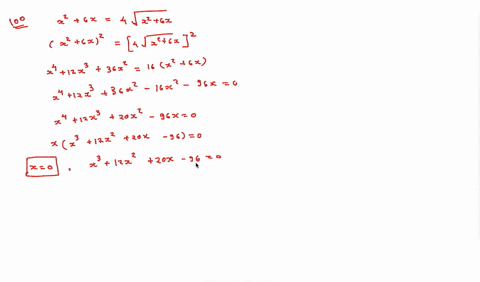 100 x² + 6x = 4√x²+6x
(x² + 6x)² = [4√x²+6x]²
x⁴ + 12x³ + 36x² = 16(x² + 6x)
x⁴ + 12x³ + 36x² - 16x² - 96x = 0
x⁴ + 12x³ + 20x² - 96x = 0
x(x³ + 12x² + 20x - 96) = 0
x = 0, x³ + 12x² + 20x - 96 = 0